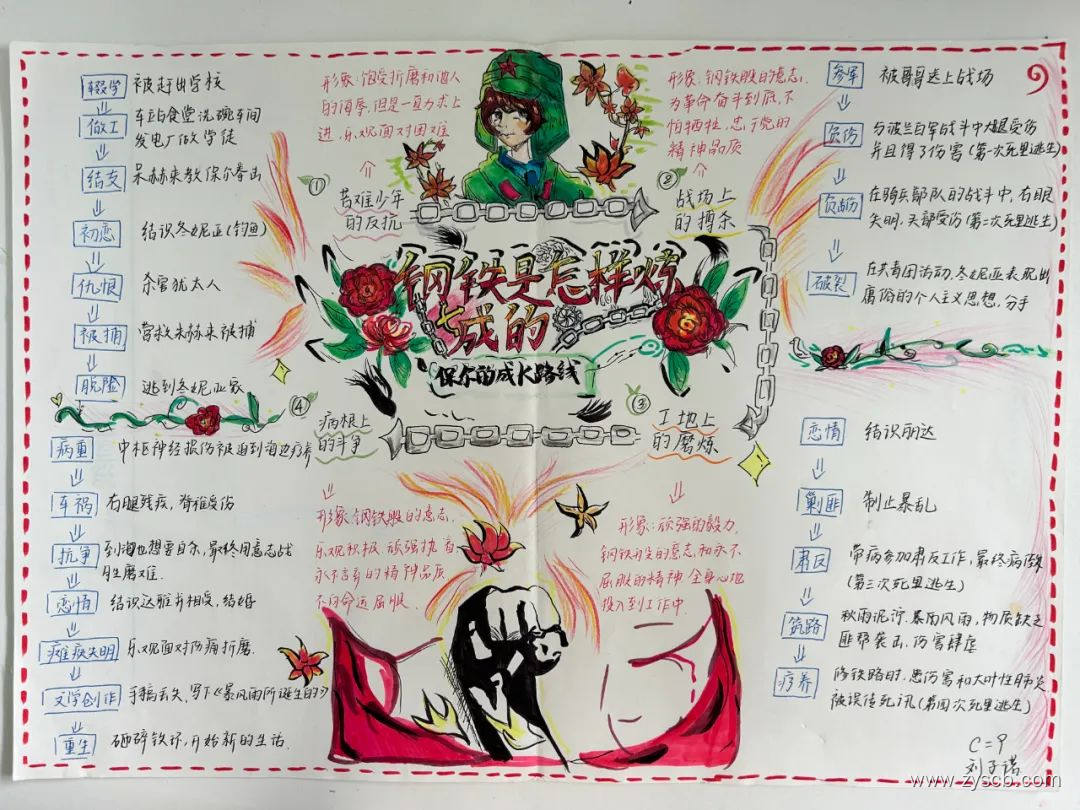 钢铁是怎样炼
成的
保尔的成长路线
①
苦难少年
的反抗
形象:饱受折磨和他人
的侮辱,但是一直力求上
进,乐观面对困难
辍学 被赶出学校
做工 车站食堂洗碗车间
发电厂做学徒
结支 朱赫来教保尔拳击
初恋 结识冬妮亚(钓鱼)
仇恨 杀害犹太人
被捕 营救朱赫来被捕
脱险 逃到冬妮亚家
②
战场上
的搏杀
形象:钢铁般的意志,
为革命奋斗到底,不
怕牺牲,忠于党的
精神品质
参军 被骗送上战场
负伤 与波兰白军战斗中大腿受伤
并且得了伤寒(第一次死里逃生)
负伤 在骑兵部队的战斗中,右眼
失明,头部受伤(第二次死里逃生)
破裂 在共青团活动,冬妮亚表现出
庸俗的个人主义思想,分手
③
工地上
的磨炼
形象:顽强的毅力,
钢铁般的意志,和永不
屈服的精神 全身心地
投入到工作中.
恋情 结识丽达
剿匪 制止暴乱
肃反 带病参加肃反工作,最终病倒
(第三次死里逃生)
筑路 秋雨泥泞,暴雨风雨,物质缺乏
匪帮袭击,伤寒肆虐
疗养 修铁路时,患伤寒和大叶性肺炎
被误传死讯(第四次死里逃生)
④
病根上
的斗争
形象:钢铁般的意志,
乐观积极 顽强执着
永不言弃的精神品质
不向命运屈服.
病重 中枢神经损伤被迫到海边疗养
车祸 右腿残疾,脊椎受伤
抗争 到海边想要自杀,最终用意志战
胜磨难.
恋情 结识达雅并相爱,结婚
瘫痪失明 乐观面对伤痛折磨.
文学创作 手稿丢失,写下《暴风雨所诞生的》
重生 砸碎铁环,开始新的生活.
C=9
刘子诺
www.zyscb.com